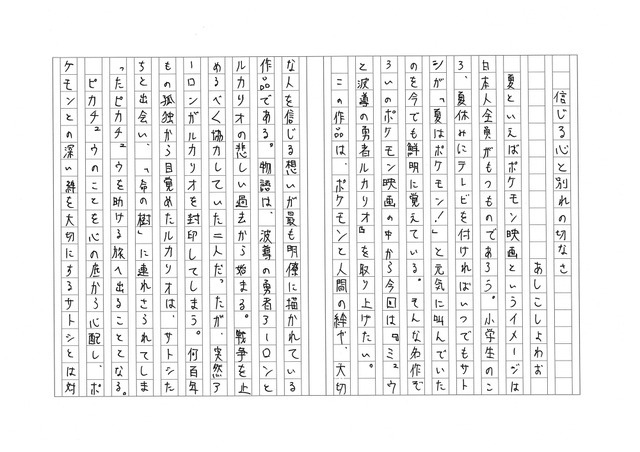 信じる心と別れの切なさ
あしこしよわお
夏といえばポケモン映画というイメージは
日本人全員がもつものであろう。小学生のこ
ろ、夏休みにテレビを付ければいつでもサト
シが「夏はポケモン！」と元気に叫んでいた
のを今でも鮮明に覚えている。そんな名作ぞ
ろいのポケモン映画の中から今回は『ミュウ
と波導の勇者ルカリオ』を取り上げたい。
この作品は、ポケモンと人間の絆や、大切
な人を信じる想いが最も明僚に描かれている
作品である。物語は、波導の勇者アーロンと
ルカリオの悲しい過去から始まる。戦争を止
めるべく協力していた二人だったが、突然ア
ーロンがルカリオを封印してしまう。何百年
もの孤独から目覚めたルカリオは、サトシた
ちと出会い、「命の樹」に連れさられてしま
ったピカチュウを助ける旅へ出ることとなる。
ピカチュウのことを心の底から心配し、ポ
ケモンとの深い絆を大切にするサトシとは対